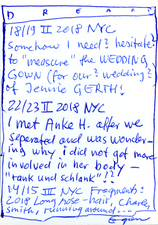 DREAM
18/19 II 2018 NYC
somehow I need? hesitate?
to "measure" the WEDDING
GOWN (for our? wedding?
of Jennie GERTH!
22/23 II 2018 NYC
I met Anke H. after we
seperated and was wonder-
ing why i did not get more
involved in her body —
"rank und schlank"!?
14/15 III NYC Fragments:
2018 Long nose-hair, Charly,
Smith, running around...